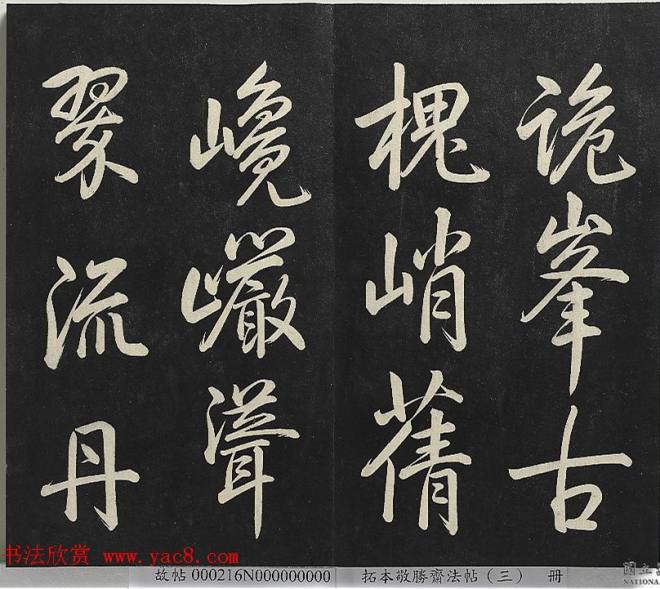 詭峯古
槐峭蒨
巉巗聳
翠流丹
书法欣赏 www.yac8.com
故帖 000216N000000000 拓本敬勝齋法帖（三） 冊
國立
NATIONAL